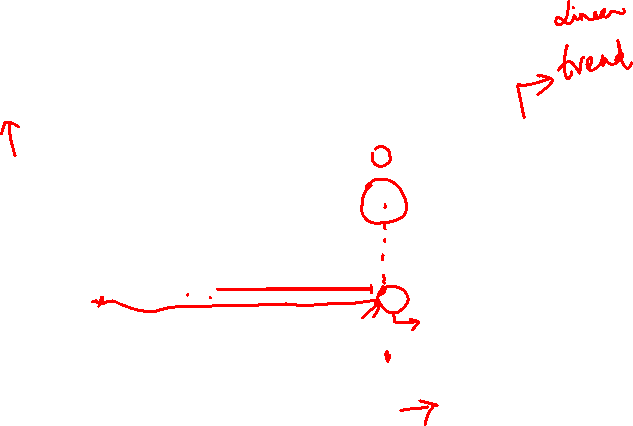 linear
trend